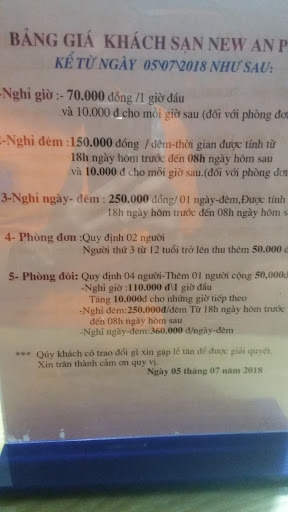 BẢNG GIÁ KHÁCH SẠN NEW AN P
KỂ TỪ NGÀY 05/07/2018 NHƯ SAU:
-Nghỉ giờ :- 70.000 đồng /1 giờ đầu
và 10.000 đ cho mỗi giờ sau (đối với phòng đơn
-Nghỉ đêm :150.000 đồng / đêm-thời gian được tính từ
18h ngày hôm trước đến 08h ngày hôm sau
và 10.000 đ cho mỗi giờ sau.(đối với phòng đơn
3-Nghỉ ngày- đêm : 250.000 đồng/ 01 ngày-đêm,Được tính
18h ngày hôm trước đến 08h ngày hôm s
4- Phòng đơn :Quy định 02 người
Người thứ 3 từ 12 tuổi trở lên thu thêm 50.000 đ
5- Phòng đôi: Quy định 04 người-Thêm 01 người cộng 50,000đ
-Nghỉ giờ :110.000 đ\1 giờ đầu
Tăng 10.000đ cho những giờ tiếp theo
-Nghỉ đêm:250.000đ/đêm Từ 18h ngày hôm trước
đến 08h ngày hôm sau
-Nghỉ ngày-đêm:360.000 đ/ngày-đêm
*** Qúy khách có trao đổi gì xin gặp lễ tân để được giải quyết.
Xin trân thành cảm ơn quý vị.
Ngày 05 tháng 07 năm 2018